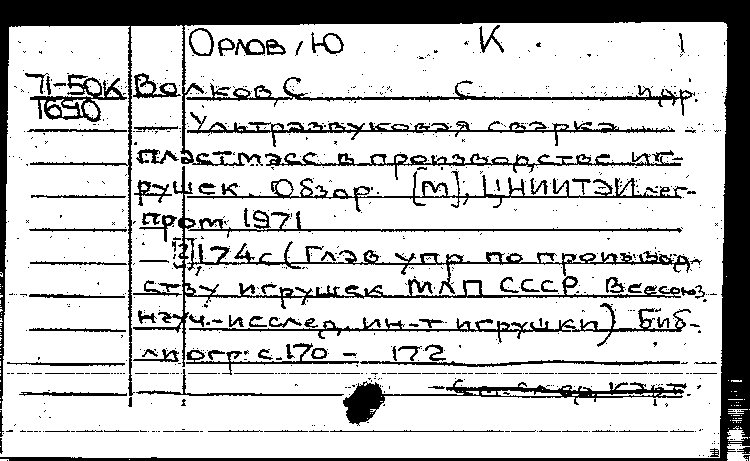 Орлов, Ю К
71-50К Волков, С С и др.
1690
Ультразвуковая сварка
пластмасс в производстве иг-
рушек. Обзор. [М], ЦНИИТЭИлег-
пром, 1971
[2], 174с (Глав упр. по производ-
ству игрушек МЛП СССР Всесоюз
науч.-исслед. ин-т игрушки) Биб-
лиогр: с. 170 - 172
См. след. карт.